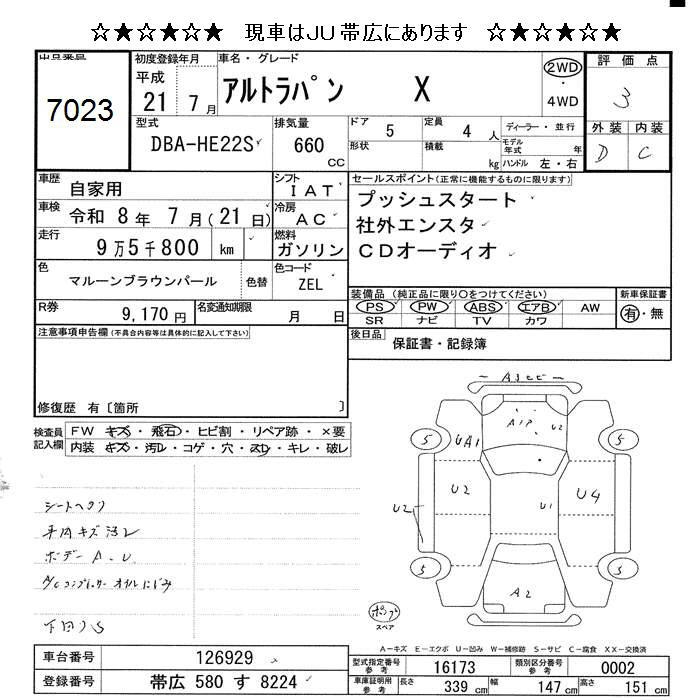 ☆★☆★☆★☆ 現車はJU帯広にあります ☆★☆★☆★☆
出品番号
7023
初度登録年月
平成
21 7 月
車名・グレード
アルトラパン X
2WD
・
4WD
評価点
3
外装 内装
D C
型式
DBA-HE22S
排気量
660
CC
ドア 5
定員 4 人
形状
積載 kg
ディーラー・並行
モデル年式 年
ハンドル 左・右
車歴
自家用
シフト
IAT
車検
令和 8 年 7 月(21 日)
冷房
AC
走行
9万5千800 km
燃料
ガソリン
色
マルーンブラウンパール
色替
色コード
ZEL
R券
9,170 円
名変通知期限
月 日
セールスポイント(正常に機能するものに限ります)
プッシュスタート
社外エンスタ
CDオーディオ
装備品(純正品に限り○をつけてください)
PS PW ABS エアB AW
SR ナビ TV カワ
新車保証書
有・無
後日品
保証書・記録簿
注意事項申告欄(不具合内容等は具体的に記入して下さい)
修復歴 有〔箇所 〕
検査員記入欄
FW キズ・飛石・ヒビ割・リペア跡・×要
内装 キズ・汚レ・コゲ・穴・スレ・キレ・破レ
シートヘタリ
ボデー A.U
下回りS
A1P
U2
5
UA1
5
U2
U2
U1
U4
5
5
A2
スペア
A-キズ E-エクボ U-凹み W-補修跡 S-サビ C-腐食 XX-交換済
車台番号
126929
登録番号
帯広 580 す 8224
型式指定番号
参考
16173
類別区分番号
参考
0002
車庫証明用
参考
長さ 339 cm
幅 147 cm
高さ 151 cm